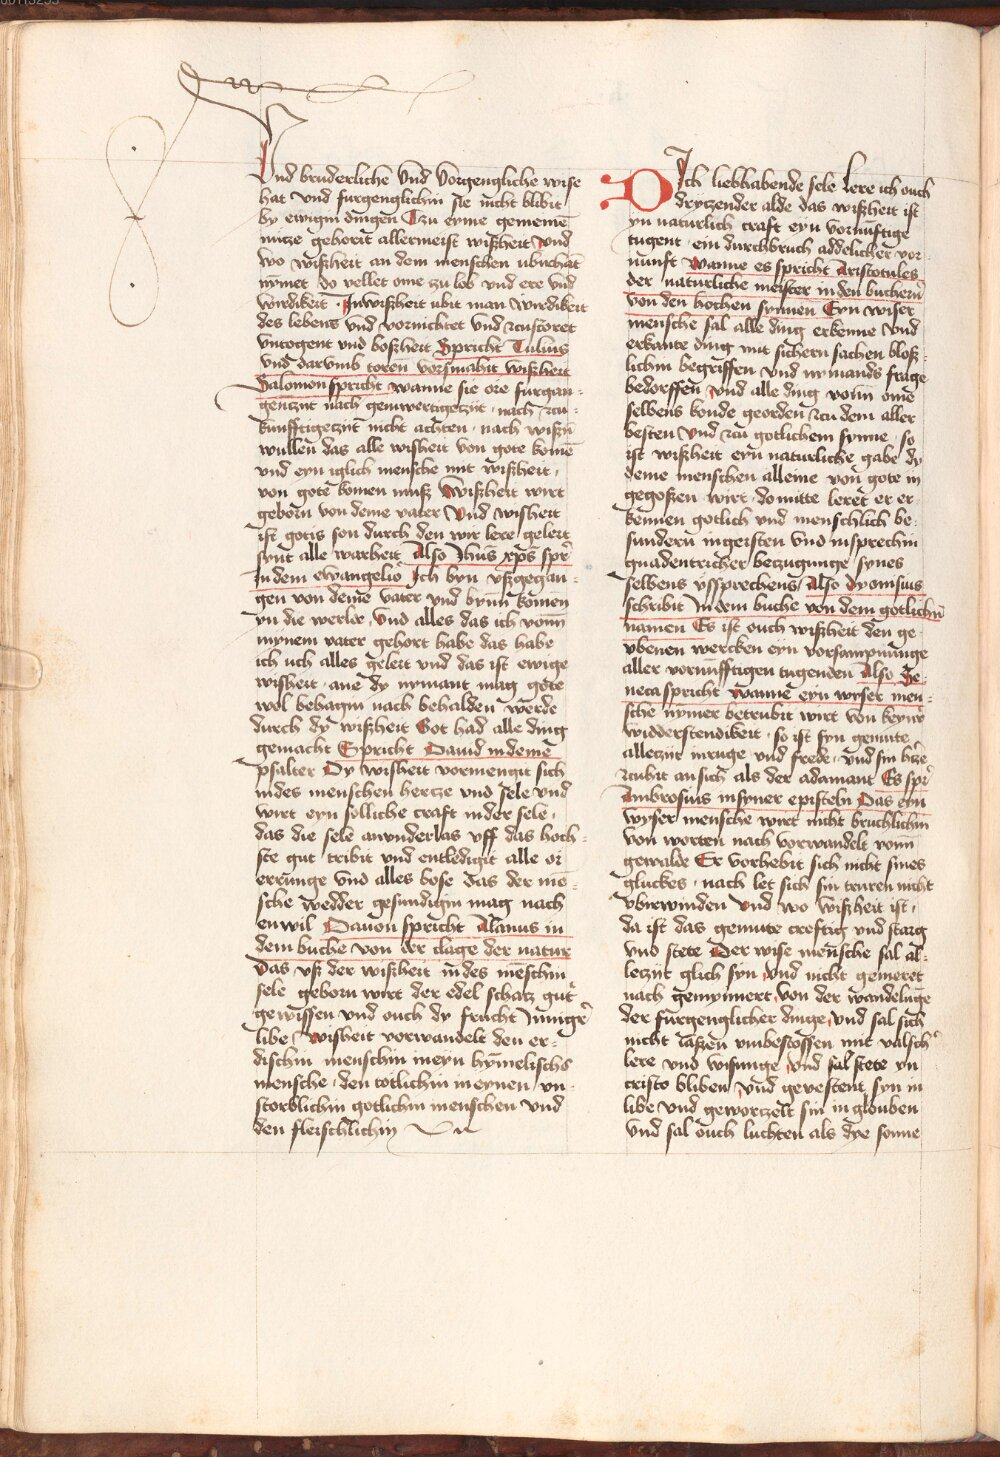 Vnd bruderlichē vnd vorgengliche wise
hat vnd furgenglichin sie nicht blibit
by ewigin dingen Tzu eyme gemeinē
nutze gehorit allermeist wißheit vnd
wo wißheit an dem menschen vbirhāt
nymet do vellet ome zu lob vnd ere vnd
wirdikeit · Inwißheit vbit man wirdikeit
des lebens vnd vornichtet vnd zcustoret
vntogent vnd boßheit Spricht Tulius
vnd darvmb toren vorsmahit wißheit
Salomon spricht wanne sie ore furgan-
genczit nach geinwertigeczit · nach zcu-
kunfftigeczit nicht achten · nach wißin
wullen das alle wisheit von gote komē
vnd eyn iglich mensche mit wißheit ·
von gote komen muß Wißheit wirt
geborn von deme vater Vnd wisheit
ist gotis son durch den wir lere geleit
synt alle warheit Also Jhūs xp̄s spr̄
in dem ewangelio Ich byn vßgegan-
gen von deme vater vnd bynn komen
yn die werlde · vnd alles das ich vonn
mynem vater gehort habe das habe
ich uch alles geleit vnd das ist ewige
wisheit · ane dy nymant mag gote
wol behagin nach behalden werde
durch dy wißheit Got had alle ding
gemacht Spricht Dauid in deme
psalter Dy wisheit vormengit sich
in des menschen hertze vnd sele vnd
wirt eyn solliche craft in der sele ·
das die sele anunderlas vff das hoch-
ste gut · tribit vnd entledigit alle or
errunge vnd alles bose das der mē-
sche wedder gesundigin mag nach
enwil Dauon spricht Alanus in
dem buche von der clage der natur
Das vß der wißheit in des mēschin
sele geborn wirt der edel schatz gut
gewissen vnd ouch dy frucht Inniger
libe Wisheit vorwandelt den er-
dischin menschin in eyn hymelischs
mensche · den totlichin in eynen vn-
storblichin gotlichin menschen vnd
den fleischlichin
Dich liebhabende sele lere ich ouch
drytzender alde das wißheit ist
yn naturlich craft eyn vornuftige
tugent · ein durchbruch addelicher vor-
nunft Wanne es spricht Aristotules
der naturliche meister in den buchern
von den hochen synnen Eyn wiser
mensche sal alle ding erkenne vnd
erkante ding mit sichern sachen bloß-
lichin begriffen vnd nymands frage
bedorffen vnd alle ding vonn ome
selbens konde georden zcu dem aller
besten vnd zcu gotlichem synne · so
ist wißheit eyn naturliche gabe dy
deme menschen alleine von gote in
gegoßen wirt · do mitte leret er er
kennen gotlich vnd menschlich be-
sundern in geisten vnd in sprechin
gnadentricher bezugunge synes
selbens vssprechens Also dyonisius
schribit In dem buche von dem gotlichin
namen Es ist ouch wißheit den ge-
vbenen wercken eyn vorsampnunge
aller vornunfftigen tugenden Also Se-
neca spricht Wanne eyn wyser men-
sche nymer betrubit wirt von keynr
widderstendikeit · so ist syn gemute
alleczit in ruge vnd frede · vnd sin hˀcze
zcubit an sich als der adamant Es spr̄
Ambrosius in syner episteln Das eyn
wyser mensche wirt nicht bruchlichin
von worten nach vorwandelt vonn
gewalde Er vorhebit sich nicht sines
gluckes · nach let sich sin truren nicht
vbirwinden vnd wo wißheit ist ·
da ist das gemute creftig vnd starg
vnd stete Der wise mensche sal al-
leczit glich syn vnd nicht gemeret
nach gemynnert von der wandelūge
der furgenglicher dinge vnd sal sich
nicht laßen vmbestossen mit valschˀ
lere vnd wisunge vnd sal stete yn
cristo bliben vnd gevestent syn in
libe vnd geworczelt sin in glouben
vnd sal ouch luchten als dye sonne